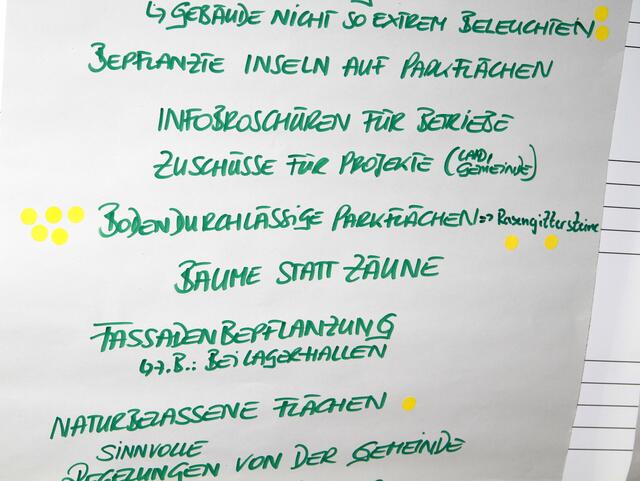 ↳ GEBÄUDE NICHT SO EXTREM BELEUCHTEN
BEPFLANZTE INSELN AUF PARKFLÄCHEN
INFOBROSCHÜREN FÜR BETRIEBE
ZUSCHÜSSE FÜR PROJEKTE (LAND, GEMEINDE)
BODENDURCHLÄSSIGE PARKFLÄCHEN => Rasengittersteine
BÄUME STATT ZÄUNE
FASSADENBEPFLANZUNG
↳ z.B.: BEI LAGERHALLEN
NATURBELASSENE FLÄCHEN
SINNVOLLE
REGELUNGEN VON DER GEMEINDE